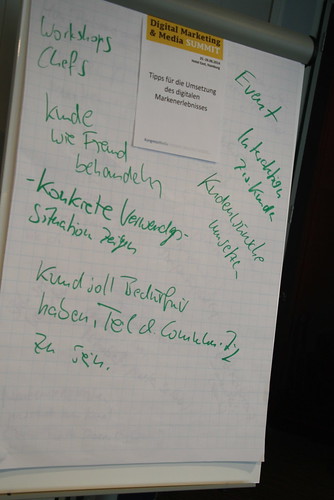 Workshops
Chefs
Kunde
wie Freund
behandeln
- Konkrete Verwendgs-
Situation zeigen
Kund soll Bedürfnis
haben, Teil d. Commun.
zu sein.
Digital Marketing
& Media SUMMIT
Tipps für die Umsetzung
des digitalen
Markenerlebnisses
Event
Interaktion
zu Kunde
Kundenwünsche
umsetzen